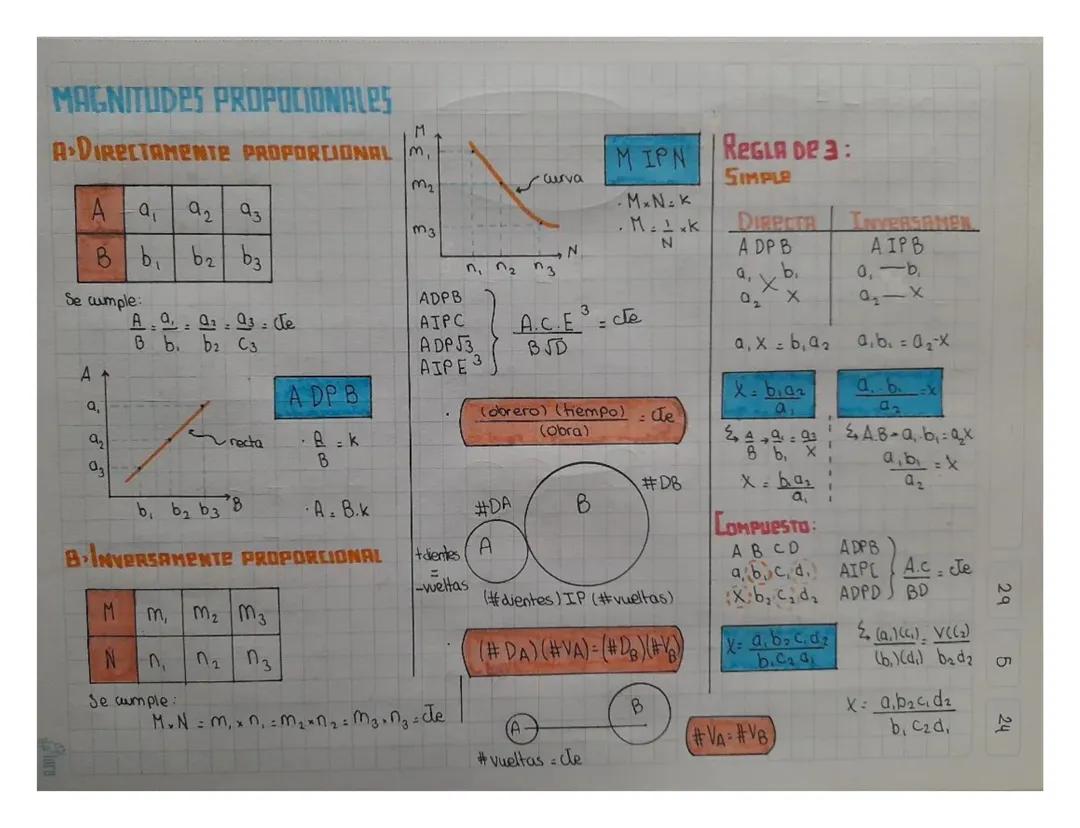 MAGNITUDES PROPOCIONALES
A>DIRECTAMENTE PROPORCIONAL
A a₁ a₂ a₃
B b₁ b₂ b₃
Se cumple:
A/B = a₁/b₁ = a₂/b₂ = a₃/c₃ = cte
A
a₁
a₂
a₃
recta
b₁ b₂ b₃ B
A DP B
· A/B = k
· A = B.k
B>INVERSAMENTE PROPORCIONAL
M m₁ m₂ m₃
N n₁ n₂ n₃
Se cumple:
M×N = m₁×n₁ = m₂×n₂ = m₃×n₃ = cte
M
m₁
m₂
m₃
curva
N
n₁ n₂ n₃
M IP N
· M×N = k
· M = 1/N ×k
ADPB
AIPC
ADP√3
AIPE³
A.C.E³/B√D = cte
· (obrero)(tiempo)/(obra) = cte
#DA
#DB
A
B
+dientes
=
-vueltas
(#dientes) IP (#vueltas)
· (#DA)(#VA)=(#DB)(#VB)
A
B
#vueltas = cte
#VA = #VB
REGLA DE 3:
SIMPLE
DIRECTA
A DP B
a₁ b₁
a₂ x
a₁x = b₁a₂
X = b₁a₂/a₁
A/B → a₁/b₁ = a₂/x
X = b₁a₂/a₁
INVERSAMEN
A IP B
a₁ — b₁
a₂ — x
a₁b₁ = a₂·x
a₁.b₁/a₂ = x
A.B → a₁.b₁ = a₂x
a₁b₁/a₂ = x
COMPUESTO:
A B C D
a₁ b₁ c₁ d₁
X b₂ c₂ d₂
ADPB
AIPC
ADPD
A.C/BD = cte
X = a₁b₂c₁d₂/b₁c₂d₁
(a₁)(c₁)/(b₁)(d₁) = x(c₂)/b₂d₂
X = a₁b₂c₁d₂/b₁c₂d₁
29
5
24